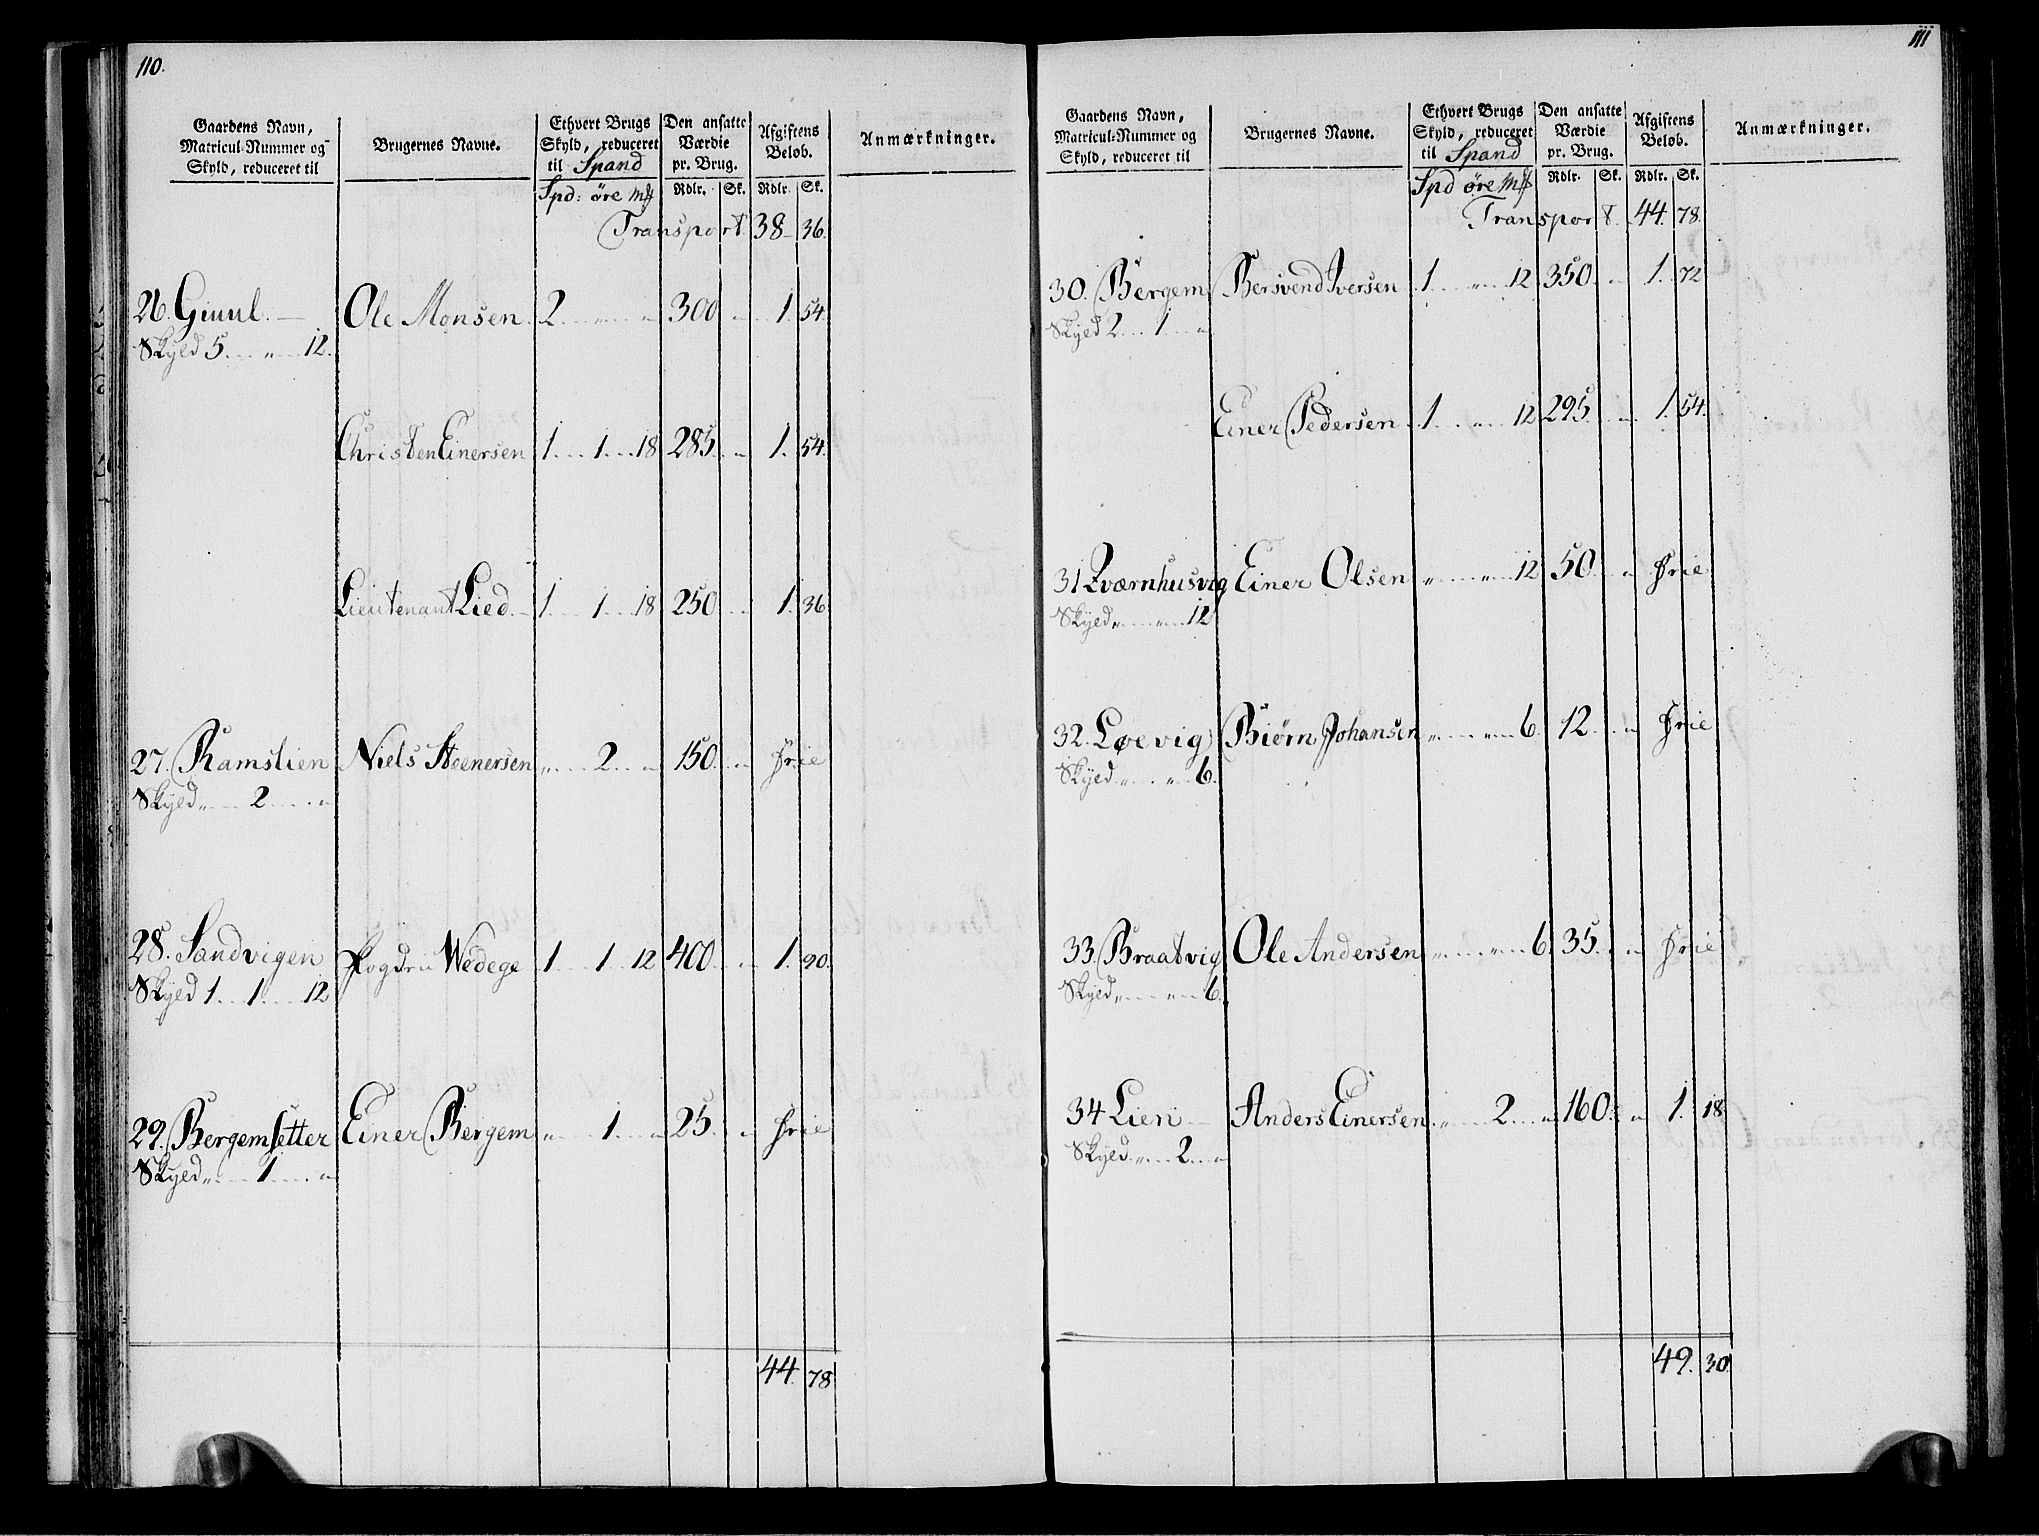 110.
Gaardens Navn, Matricul-Nummer og Skyld, reduceret til
Brugernes Navne.
Ethvert Brugs Skyld, reduceret til Spand
Den ansatte Værdie pr. Brug.
Afgiftens Beløb.
Anmærkninger.
Spd: öre mß Rdlr. Sk. Rdlr. Sk.
Transport 38 36.
26. Gimul. Ole Monsen 2 " " 300 " 1. 54.
Skyld 5. " 12.
Christen Einersen 1 1 18 285. " 1. 54.
Lieutenant Lied 1 1 18 250 " 1. 36
27. Ramslien Niels Steenersen " 2 " 150. " Frie
Skyld " 2 "
28. Sandvigen Fogden Wedege 1 1 12 400 " 1. 90.
Skyld 1 1 12
29. Bergemsetter Einer Bergem " 1 " 25 " Frie
Skyld " 1 "
44. 78
111
Gaardens Navn, Matricul-Nummer og Skyld, reduceret til
Brugernes Navne.
Ethvert Brugs Skyld, reduceret til Spand
Den ansatte Værdie pr. Brug.
Afgiftens Beløb.
Anmærkninger.
Spd öre mß Rdlr. Sk. Rdlr. Sk.
Transport. 44. 78.
30. Bergem Bersvend Iversen 1 " 12 350. " 1. 72
Skyld 2 1 "
Einer Pedersen 1 " 12 295. " 1. 54.
31 Qværnhusvig Einer Olsen " " 12 50. " Frie
Skyld " " 12
32. Løevig Biörn Johansen " " 6. 12 " Frie
Skyld " " 6.
33. Braatvig Ole Andersen " " 6. 35. " Frie
Skyld " " 6.
34 Lien Anders Einersen " 2 " 160. " 1. 18.
Skyld " 2 "
49. 30.